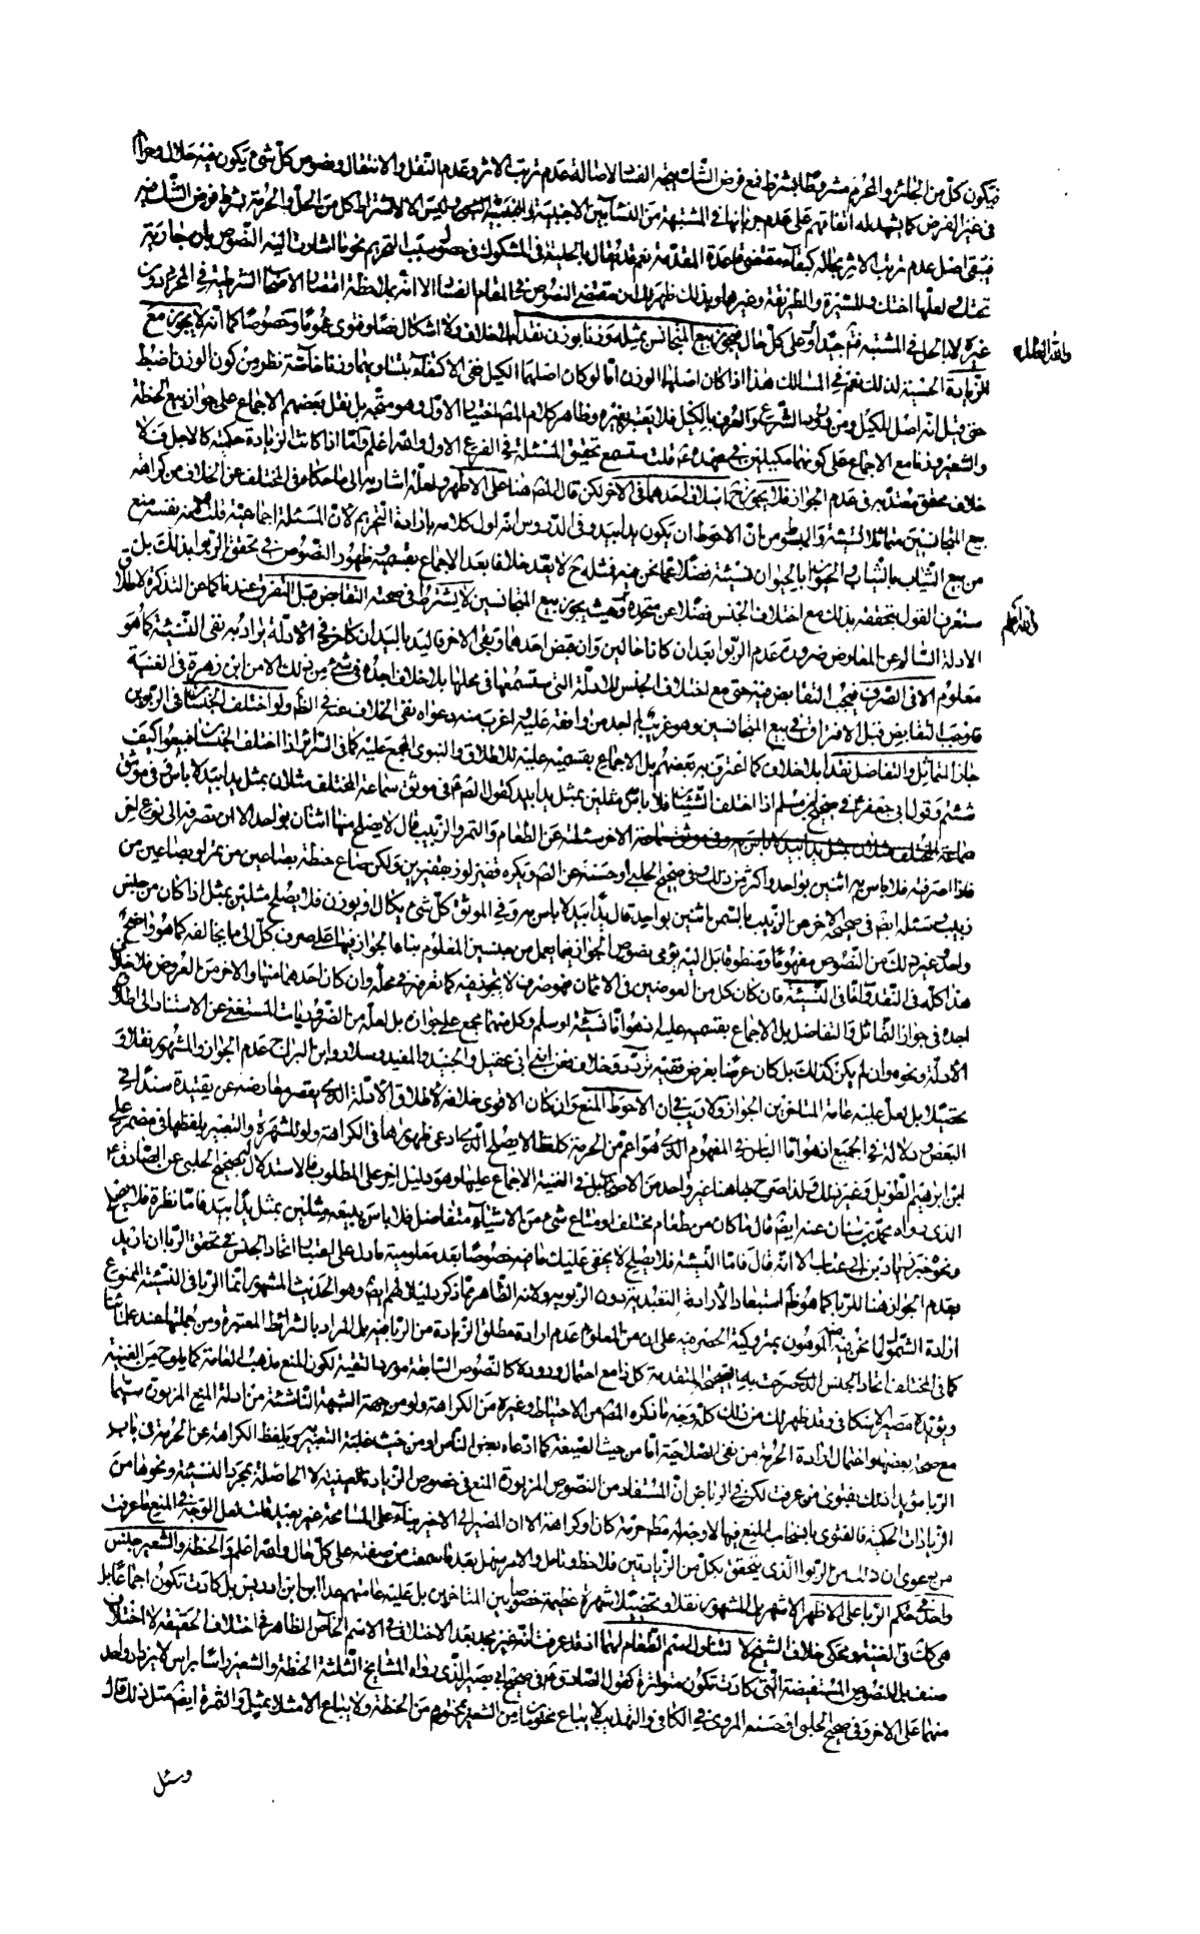 فيكون كل من الجائز والمحرم مشروطا بشرط فمع فرض الشك يتجه الفساد لاصالة عدم ترتب الاثر وعدم النقل والانتقال ونصوص كل شئ يكون فيه حلال وحرام
في غير الفرض كما يشهد له اتفاقهم على عدم جريانها في المشتبه من النساء بين الاجنبية وليس الا لاشتراط كل من الحل والحرمة بشرط فرض الشك فيه
فيبقى اصل عدم ترتب الاثر بحاله كبقاء مقتضى قاعدة المقدمة نعم قد يقال بالحلية في المشكوك في حصول سبب التحريم نحو
تحتك او لعلها اختك والسترة والطريقة وغيرهما وبذلك ظهر لك ان مقتضى النصوص في المقام الفساد الا انه بملاحظة
غيره لا بالحل في المشتبه فتم جيدا وعلى كل حال فيجوز بيع المتجانس بمثله وزنا بوزن نقدا بلا خلاف ولا اشكال نصا وفتوى عموما وخصوصا كما انه لا يجوز مع
الزيادة الحسية لذلك نعم في المسالك هذا اذا كان اصلهما الوزن اما لو كان اصلهما الكيل ففي الاكتفاء بتساويهما وزنا خاصة نظر من كون الوزن اضبط
حتى قيل انه اصل للكيل ومن ورود الشرع والعرف بالكيل فلا يعتبر بغيره وظاهر كلام المصنف اختيار الاول وهو متجه بل نقل بعضهم الاجماع على جواز بيع الحنطة
والشعير وزنا مع الاجماع على كونهما مكيلين في عهده ص قلت ستسمع تحقيق المسئلة في الفرع الاول والله اعلم واما اذا كانت الزيادة حكمية كالاجل فلا
خلاف محقق معتد به في عدم الجواز فلا يجوز ح اسلاف احدهما في الاخر لكن قال المصنف هنا على الاظهر ولعله اشار به الى ما حكاه في المختلف عن الخلاف من كراهة
بيع المتجانسين متماثلا نسيئة والمبسوط من ان الاحوط ان يكون يدا بيد وفي الدروس انه اول كلامه بارادة التحريم لان المسئلة اجماعية قلت
من بيع الثياب بالثياب والحيوان بالحيوان نسيئة فضلا عما نحن فيه فمثله ح لا يعد خلافا بعد الاجماع بقسميه وظهور النصوص في تحقق الربوا بذلك بل
ستعرف القول بتحققه بذلك مع اختلاف الجنس فضلا عن متحده وحيث يجوز بيع المتجانسين لا يشترط في صحته التقابض قبل التفرق عندنا كما عن التذكرة لاطلاق
الادلة السالم عن المعارض ضرورة عدم الربوا بعد ان كانا حالين وان قبض احدهما وبقي الاخر فاليد باليد ان كان في الادلة يراد به نفي النسيئة كما هو
معلوم الا في الصرف فيجب التقابض فيه حتى مع اختلاف الجنس للادلة التي ستسمعها في محلها بلا خلاف اجده في شئ من ذلك الا من ابن زهرة في الغنية
فاوجب التقابض قبل الافتراق في بيع المتجانسين وهو غريب لم اجد من وافقه عليه واغرب منه دعواه نفي الخلاف عنه في الظ ولو اختلف الجنسان في الربويين
جاز التماثل والتفاضل نقدا بلا خلاف كما اعترف به بعضهم بل الاجماع بقسميه عليه للاطلاق والنبوي المجمع عليه كما في السرائر اذا اختلف الجنسان فبيعوا كيف
شئتم وقول ابي جعفر ع في صحيح ابن مسلم اذا اختلف الشيئان فلا باس مثلين بمثل يدا بيد كقول الصادق ع في موثق سماعة المختلف مثلان بمثل يدا بيد لا باس وفي موثق
سماعة الاخر سئلته عن الطعام والتمر والزبيب قال لا يصلح منها اثنان بواحد الا ان تصرفه الى نوع اخر
فاذا صرفته فلا باس به اثنين بواحد واكثر من ذلك وفي صحيح الحلبي او حسنه عن الصادق ويكره قفيز لوز بقفيزين ولكن صاع حنطة بصاعين من تمر او بصاعين من
زبيب وسئله ايضا في صحيحه الاخر عن الزبيب بالتمر اثنين بواحد قال يدا بيد لا باس به وفي الموثق كل شئ يكال او يوزن فلا يصلح مثلين بمثل اذا كان من جنس
واحد وغير ذلك من النصوص مفهوما ومنطوقا بل اليه يومي نصوص الجواز فيما يعمل من جنسين المعلوم بناء الجواز فيهما على صرف كل الى ما يخالفه كما هو واضح
هذا كله في النقد واما في النسيئة فان كان كل من العوضين في الاثمان فهو صرف لا يجوز فيه كما تعرفه في محله وان كان احدهما منها والاخر من العروض فلا خلاف
اجده في جواز التماثل والتفاضل بل الاجماع بقسميه عليه اذ هو اما نسيئة او سلم وكل منهما مجمع على جوازه بل لعله من الضروريات المستغنى عن الاستناد الى اطلاق
الادلة ونحوه وان لم يكن كذلك بل كان عرضا بعرض ففيه تردد وخلاف فعن ابني ابي عقيل والجنيد والمفيد وسلار وابن البراج عدم الجواز والمشهور نقلا و
تحصيلا بل لعل عليه عامة المتاخرين الجواز ولا ريب في ان الاحوط المنع وان كان الاقوى خلافه لاطلاق الادلة الذي يقصر معارضه عن تقييده سندا في
البعض ودلالة في الجميع اذ هو اما الباس في المفهوم الذي هو اعم من الحرمة كلفظ لا يصلح الذي ادعي ظهوره هنا في الكراهة ولو للشهرة والتعبير بلفظها في مضمر علي
ابن ابراهيم الطويل وغير ذلك ولذا صرح بها هنا غير واحد من الاصحاب بل في الغنية الاجماع عليها وهو دليل اخر على المطلوب فالاستدلال بصحيح الحلبي عن الصادق ع
الذي رواه محمد بن سنان عنه ايضا قال ما كان من طعام مختلف او متاع او شئ من الاشياء متفاضل فلا باس ببيعه مثلين بمثل يدا بيد فاما نظرة فلا يصلح
ونحوه خبر زياد بن ابي غياث الا انه قال فاما النسيئة فلا يصلح لا يخفى عليك ما فيه خصوصا بعد معلومية ما دل على اعتبار اتحاد الجنس في تحقق الربا ان اريد
بعدم الجواز هنا للربا كما هو ظاهرهم استبعادا لارادة التعبدية دون الربوية ولانه الظاهر مما ذكر دليلا لهم ايضا وهو الحديث المشهور انما الربا في النسيئة الممنوع
ارادة الشمول لما نحن فيه الموهون بمتروكية الحصر فيه على ان من المعلوم عدم ارادة مطلق الزيادة من الربا فيه بل المراد بالشرائط المعتبرة ومن جملتها عند علمائنا
كما في المختلف اتحاد الجنس الذي صرحت به الصحاح المتقدمة كل ذا مع احتمال ورود كالنصوص السابقة مورد التقية لكون المنع مذهب العامة كما يلوح من الغنية
ويؤيده مصير الاسكافي وقد ظهر لك من ذلك كله وجه ما ذكره المصنف من الاحتياط وغيره من الكراهة ولو من جهة الشبهة الناشئة من ادلة المنع المزبورة سيما
مع صحة بعضها واحتمال ارادة الحرمة من نفي الصلاحية اما من حيث الصيغة كما ادعاه بعض الناس او من حيث غلبة التعبير به وبلفظ الكراهة عن الحرمة في باب
الربا مؤيدا ذلك بفتوى من عرفت لكن في الرياض ان المستفاد من النصوص المزبورة المنع في خصوص الزيادة العينية لا الحاصلة بمجرد النسيئة ونحوها من
الزيادات الحكمية فالفتوى باستحباب المنع فيها لا وجه له مطلقا حرمة كان او كراهة الا ان المصير الى الاخير بناء على المسامحة غير بعيد قلت لعل الوجه في المنع ما عرفت
من دعوى ان ذلك من الربوا الذي يتحقق بكل من الزيادتين فلاحظ وتامل والامر سهل بعد ما سمعت من ضعفه على كل حال والله اعلم والحنطة والشعير جنس
واحد في حكم الربا على الاظهر الاشهر بل المشهور نقلا وتحصيلا شهرة عظيمة خصوصا بين المتاخرين بل عليه عامتهم عدا ابن ادريس بل كادت تكون اجماعا بل
هي كذلك في الغنية ومحكي خلاف الشيخ لا لتناول اسم الطعام لهما اذ قد عرفت انه غير مجد بعد الاختلاف في الاسم الخاص الظاهر في اختلاف الحقيقة لا اختلاف
صنف بل للنصوص المستفيضة التي كادت تكون متواترة كقول الصادق ع في صحيح ابي بصير الذي رواه المشايخ الثلثة الحنطة والشعير راسا براس لا يزداد واحد
منهما على الاخر وفي صحيح الحلبي او حسنه المروي في الكافي والتهذيب لا يباع مختومان من الشعير بمختوم من الحنطة ولا يباع الا مثلا بمثل والثمرة ايضا مثل ذلك قال
وسئل
والله العالم
والله اعلم